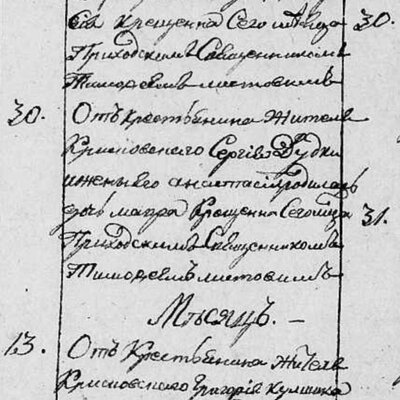 сія Крещенна Сего мѣсяца 30.
Приходскимъ Священникомъ
Тимофеемъ Листовимъ
30. Отъ крестьянина жителя
Крисковского Сергія Дудки
и жены его анастасіи родилась
дочь мавра Крещенна Сего мѣсяца 31.
Приходскимъ Священникомъ
Тимофеемъ листовимъ
Мѣсяцъ. —
13. Отъ Крестьянина Жителя
Крисковского Григорія кулишка